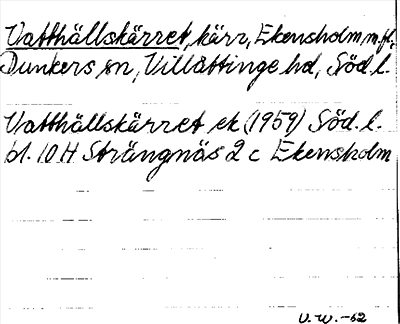 Vatthällskärret, kärr, Ekensholm, m.fl.,
Dunkers sn, Villåttinge hd, Söd. l.
Vatthällskärret ek (1959) Söd. l.
bl. 10 H Strängnäs 2 c Ekensholm
U.W.-62